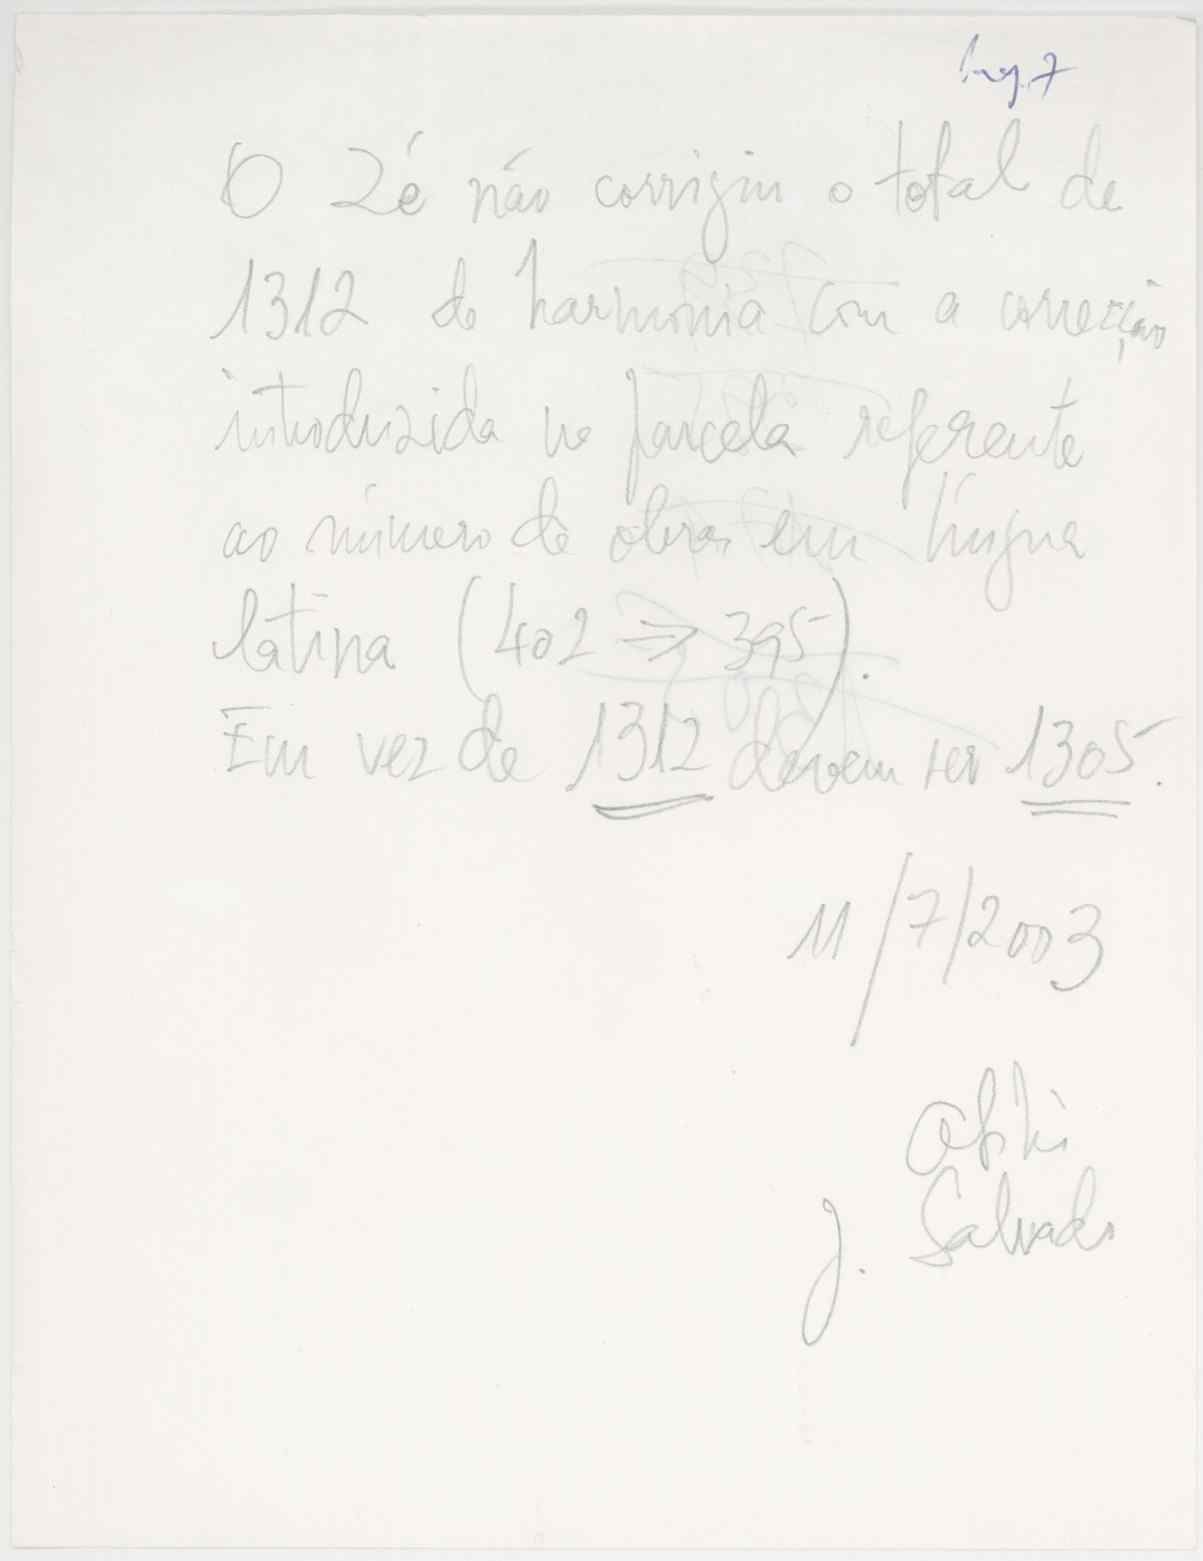 O Zé não corrigiu o total de
1312 de harmonia com a correcção
introduzida na parcela referente
ao número de obras em língua
latina (402 => 395).
Em vez de 1312 devem ser 1305.
11/7/2003
J. Salvado